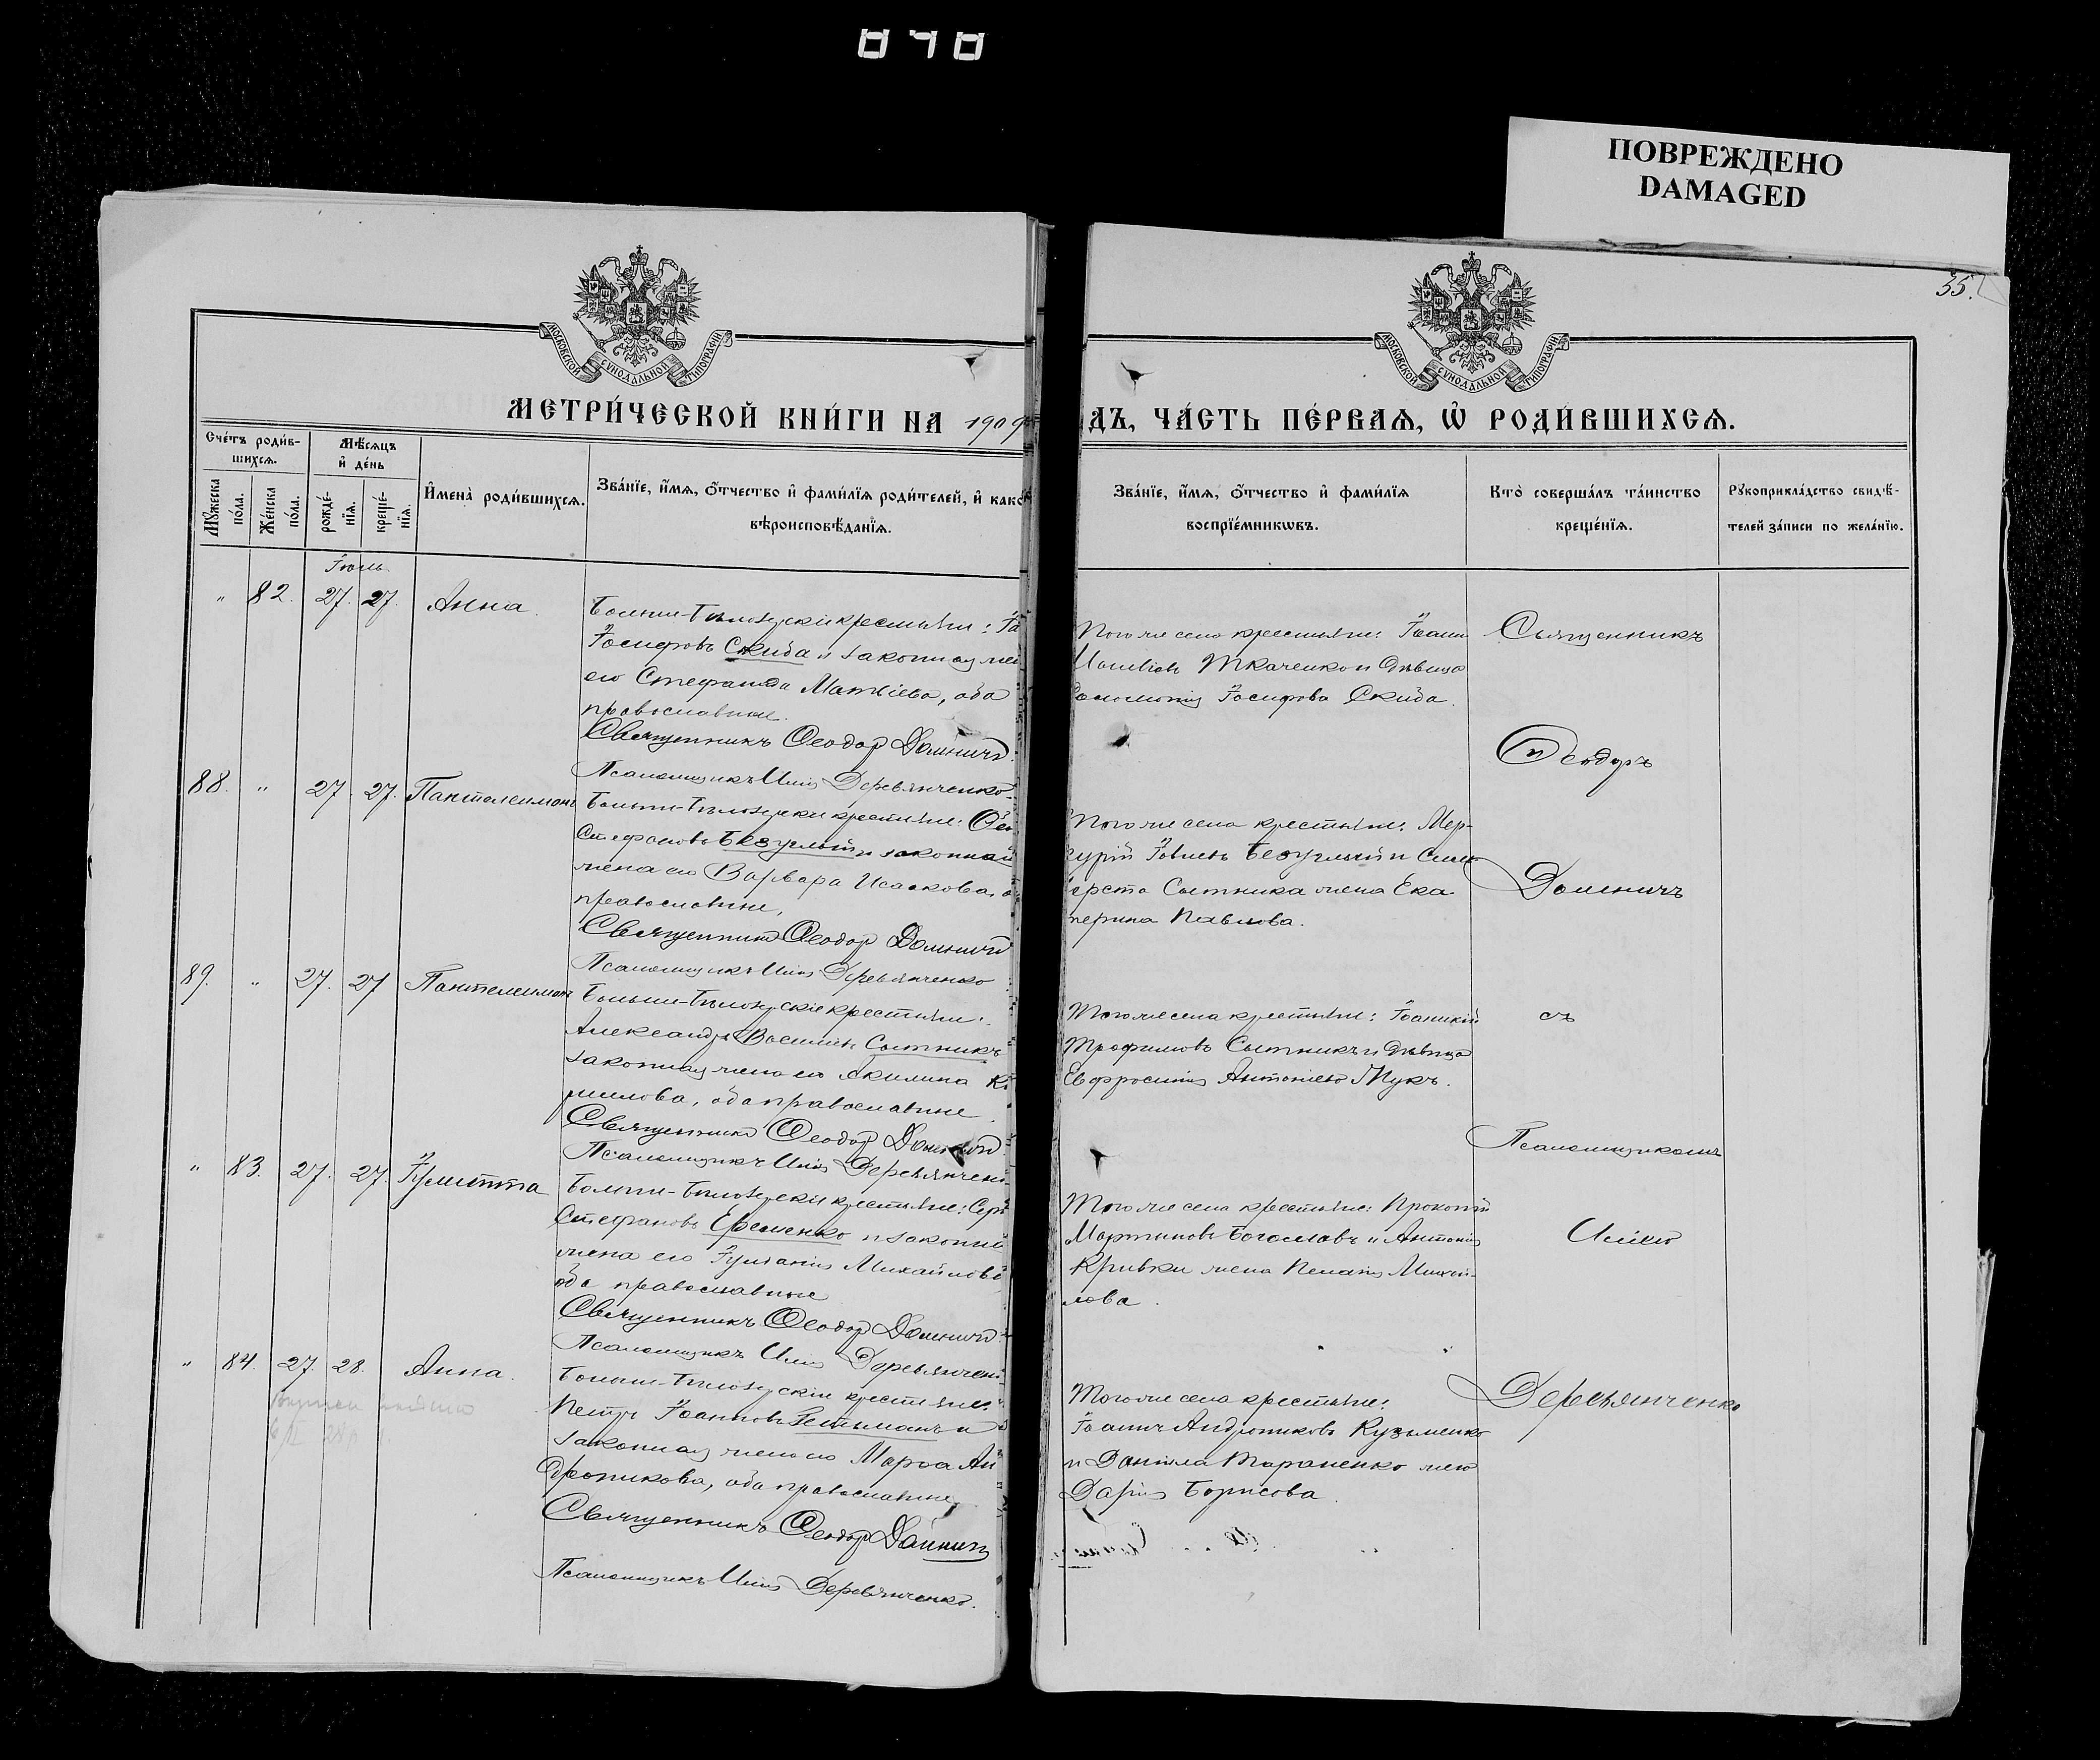 ПОВРЕЖДЕНО
DAMAGED
35.
МОСКОВСКОЙ СѴНОДАЛЬНОЙ ТИПОГРАФІИ
МОСКОВСКОЙ СѴНОДАЛЬНОЙ ТИПОГРАФІИ
МЕТРИ́ЧЕСКОЙ КНИ́ГИ НА 1909
ДЪ, ЧА́СТЬ ПЕ́РВАѦ, Ѡ҆ РОДИ́ВШИХСѦ.
Сче́тъ роди́в-
шихсѧ.
Мꙋ́жеска
по́ла.
Же́нска
по́ла.
Мѣ́сѧцъ
и҆ де́нь
рожде́-
нїѧ.
креще́-
нїѧ.
И҆мена̀ роди́вшихсѧ.
Зва́нїе, и҆́мѧ, ѻ҆́тчество и҆ фами́лїѧ роди́телей, и҆ како
вѣроисповѣ́данїѧ.
Зва́нїе, и҆́мѧ, ѻ҆́тчество и҆ фами́лїѧ
воспрїе́мникѡвъ.
Кто̀ соверша́лъ та́инство
креще́нїѧ.
Рꙋкоприкла́дство свидѣ́-
телей за́писи по жела́нїю.
Іюль
" 82. 27. 27. Анна.
Больше-Бѣлозерскіе крестьяне:
Іосифовъ Скиба и законная
его Стефанида Матѳіева, оба
православные.
Священникъ Ѳеодоръ Доминичъ
Псаломщикъ Илія Деревянченко
Того же села крестьяне: Іоаннъ
Ткаченко и дѣвица
Іосифова Скиба.
Священникъ
Ѳеодоръ
88. " 27. 27. Пантелеимонъ
Больше-Бѣлозерскіе крестьяне:
Стефановъ Безуглый и законная
жена его Варвара Исаакова,
православные,
Священникъ Ѳеодоръ Доминичъ
Псаломщикъ Илія Деревянченко
Того же села крестьяне: Мер-
курій Безуглый и
Сытника жена Ека
терина Павлова.
Доминичъ
89. " 27. 27 Пантелеимонъ
Больше-Бѣлозерскіе крестьяне:
Александръ Васильевъ Сытникъ
законная жена его Акилина Ки
риллова, оба православные
Священникъ Ѳеодоръ Доминичъ
Псаломщикъ Илія Деревянченко
Того же села крестьяне: Іоанникій
Трофимовъ Сытникъ и дѣвица
Евфросинія Антоніева Жукъ.
съ
Псаломщикомъ
" 83. 27. 27. Іулитта
Больше-Бѣлозерскіе крестьяне:
Стефановъ Еременко и законная
жена его Іуліанія Михайлова
оба православные
Священникъ Ѳеодоръ Доминичъ
Псаломщикъ Илія Деревянченко
Того же села крестьяне: Прокопій
Мартиновъ Богославъ и Антонія
Кривки жена Пелагія Михай-
лова.
Иліею
" 84. 27. 28. Анна.
Больше-Бѣлозерскіе крестьяне:
Петръ Іоанновъ Гетьманъ и
законная жена его Марѳа Ан
дроникова, оба православные
Священникъ Ѳеодоръ Доминичъ
Псаломщикъ Илія Деревянченко.
Того же села крестьяне:
Іоаннъ Андрониковъ Кузьменко
и Даніила Тараненко жена
Дарія Борисова.
Деревянченко